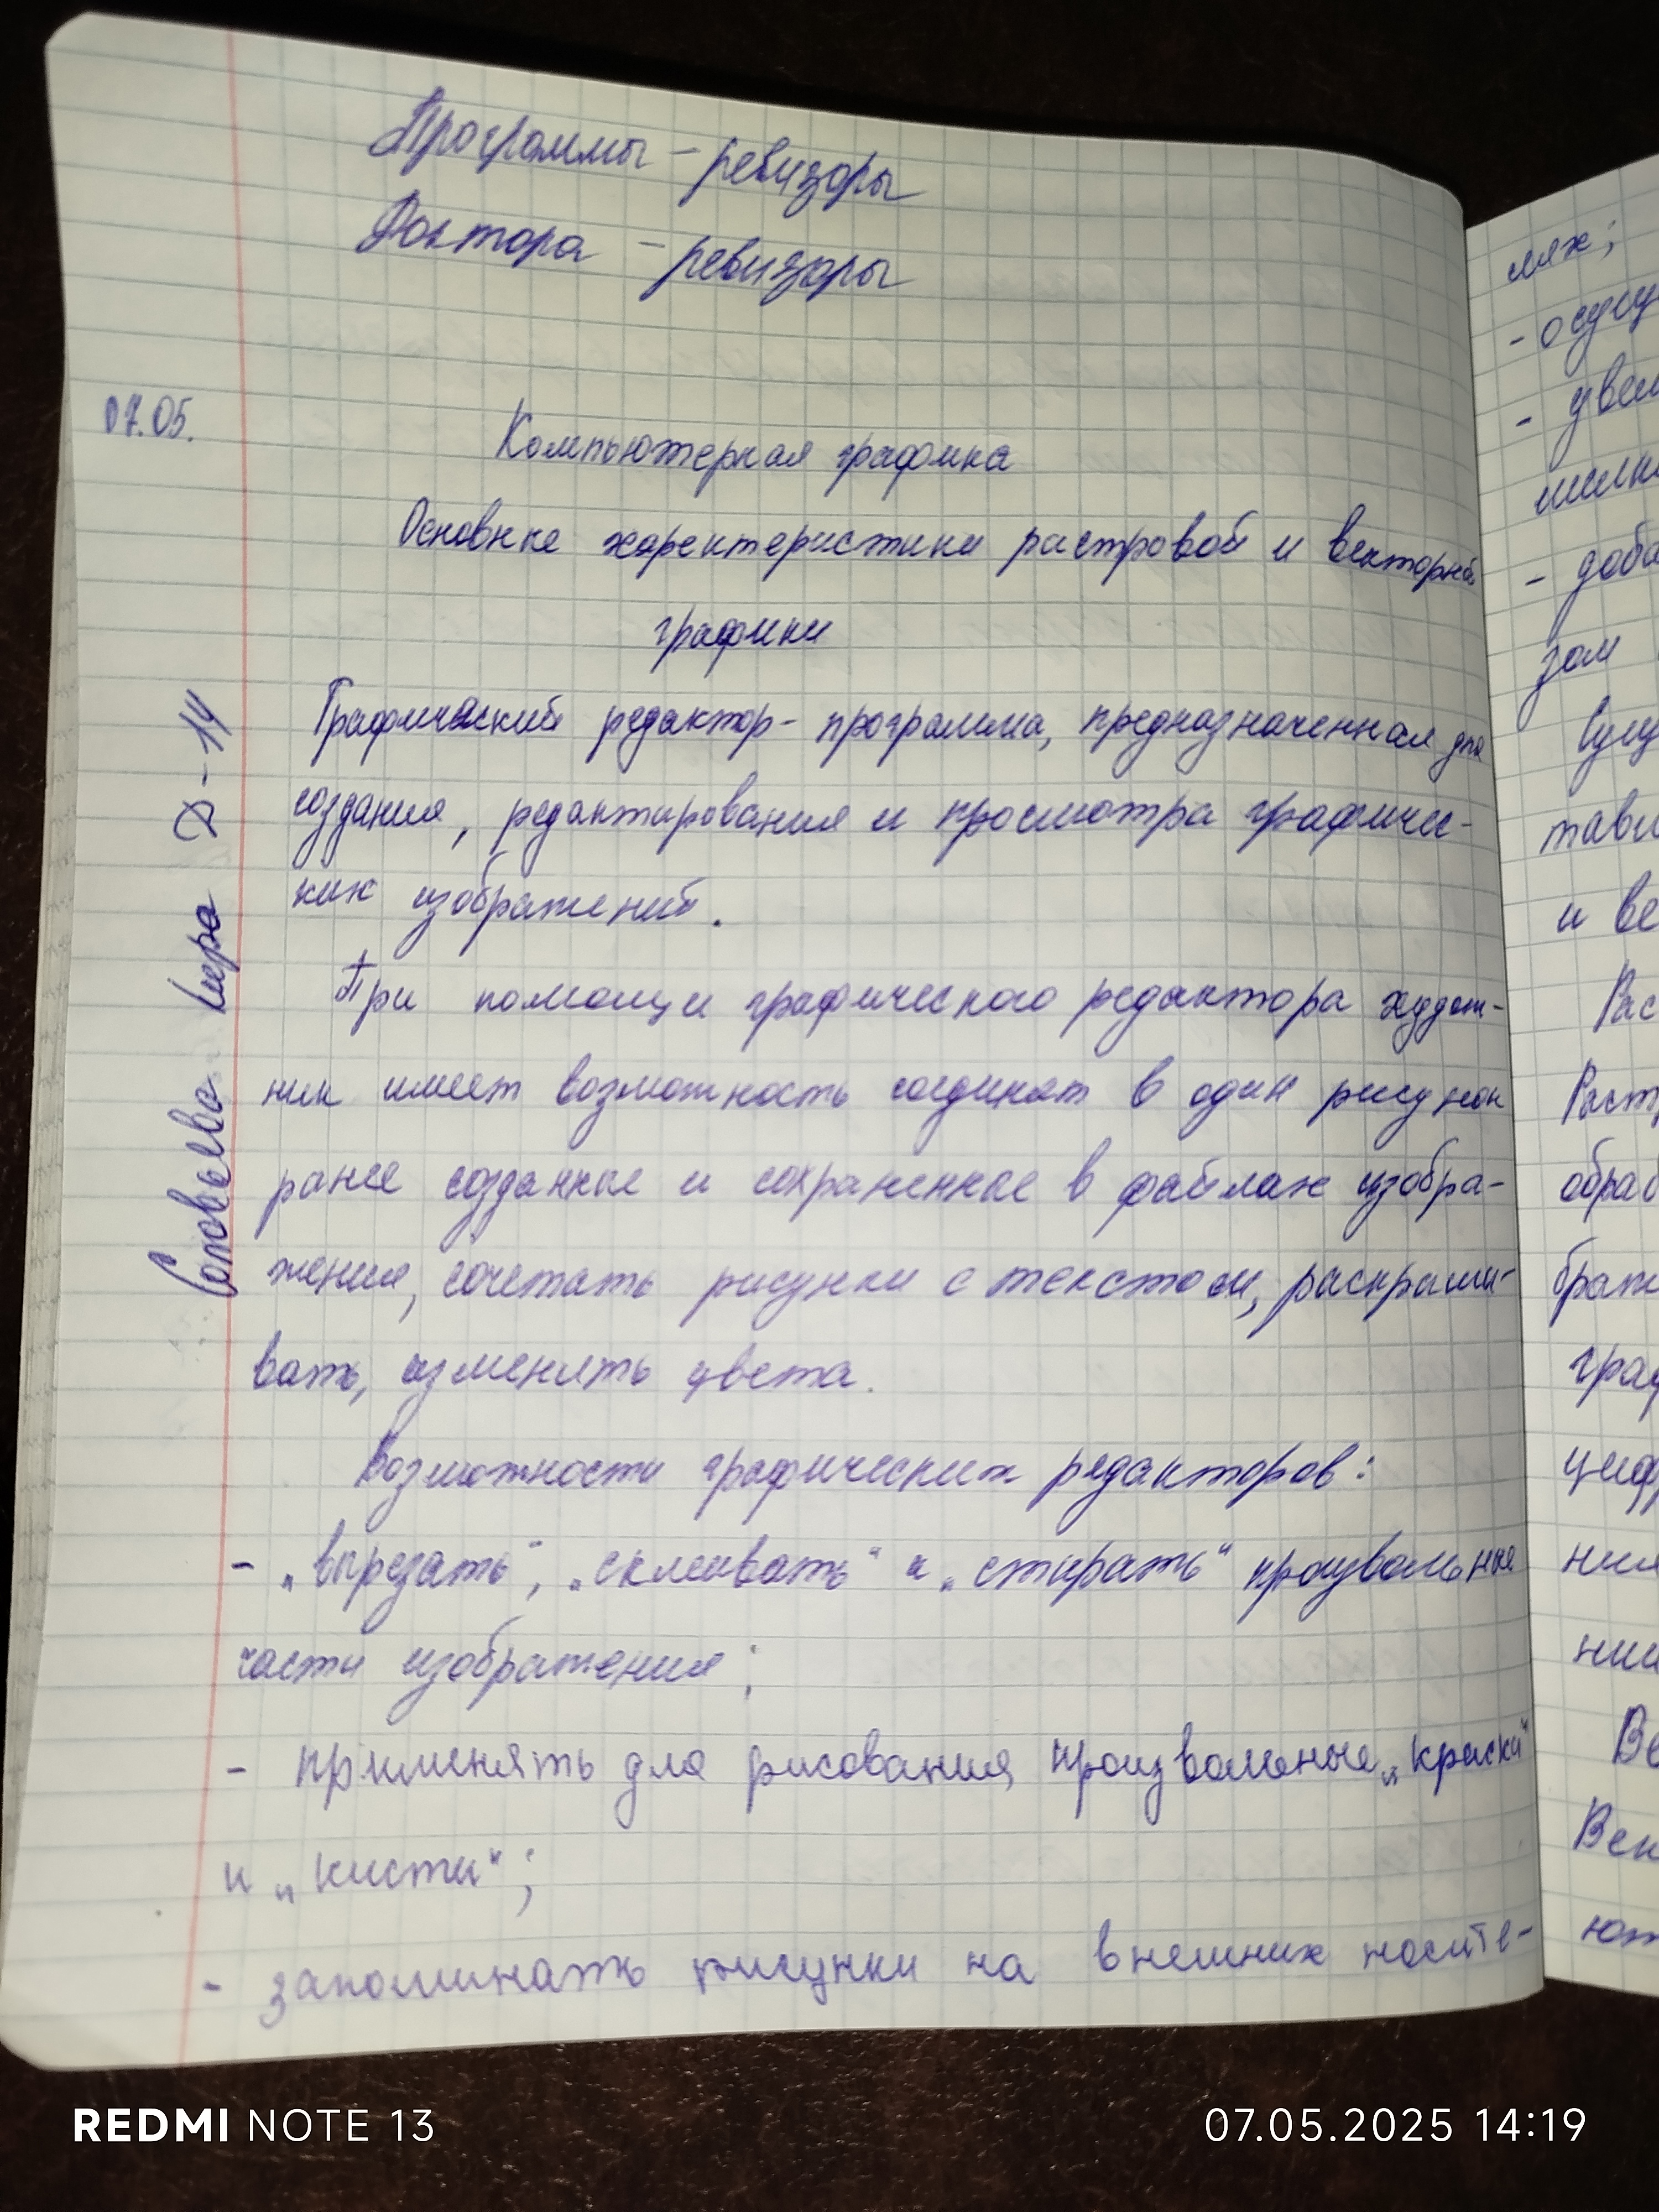 Программы - ревизоры
Доктора - ревизоры
07.05.
Компьютерная графика
Основные харектеристики растровой и векторной
графики
Графический редактор - программа, предназначенная для
создания, редактирования и просмотра графичес-
ких изображений.
При помощи графического редактора худож-
ник имеет возможность соединят в один рисунок
ранее созданные и сохраненные в файлах изобра-
жения, сочетать рисунки с текстом, раскраши-
вать, изменять цвета.
Возможности графических редакторов:
- „вырезать“, „склеивать“ и „стирать“ произвольные
части изображения;
- применять для рисования произвольные „краски“
и „кисти“;
- запоминать рисунки на внешних носите-
Соловьева Вера Д-14
лях;
- осущ
- увел
- доба
зом
Сущ
тави
и ве
Рас
Раст
обраб
браж
граф
цифр
ния
нии
Ве
Век
ют
REDMI NOTE 13
07.05.2025 14:19